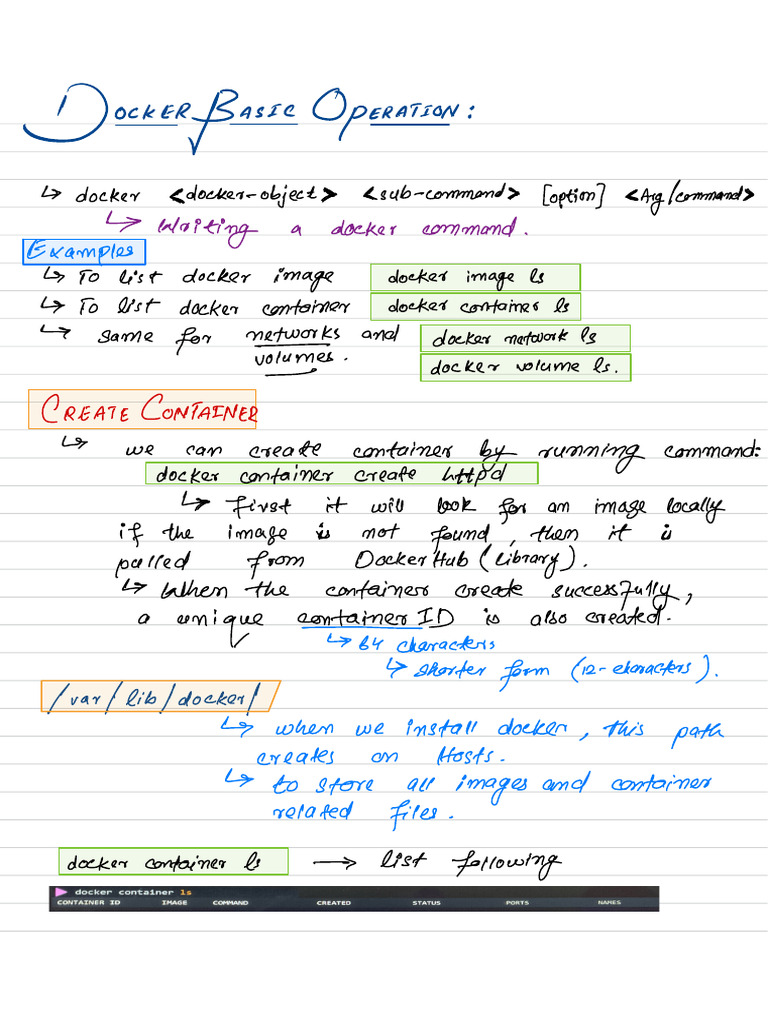 DOCKER BASIC OPERATION:
↳ docker <docker-object> <sub-command> [option] <Arg/command>
↳ Writing a docker command.
Examples
↳ To list docker image docker image ls
↳ To list docker container docker container ls
↳ same for networks and docker network ls
volumes. docker volume ls.
CREATE CONTAINER
↳ we can create container by running command:
docker container create httpd
↳ first it will look for an image locally
if the image is not found, then it is
pulled from DockerHub (library).
↳ When the container create successfully,
a unique container ID is also created.
↳ 64 characters
↳ shorter form (12-characters).
/var/lib/docker/
↳ when we install docker, this path
creates on Hosts.
↳ to store all images and container
related files.
docker container ls → list following
docker container ls
CONTAINER ID IMAGE COMMAND CREATED STATUS PORTS NAMES